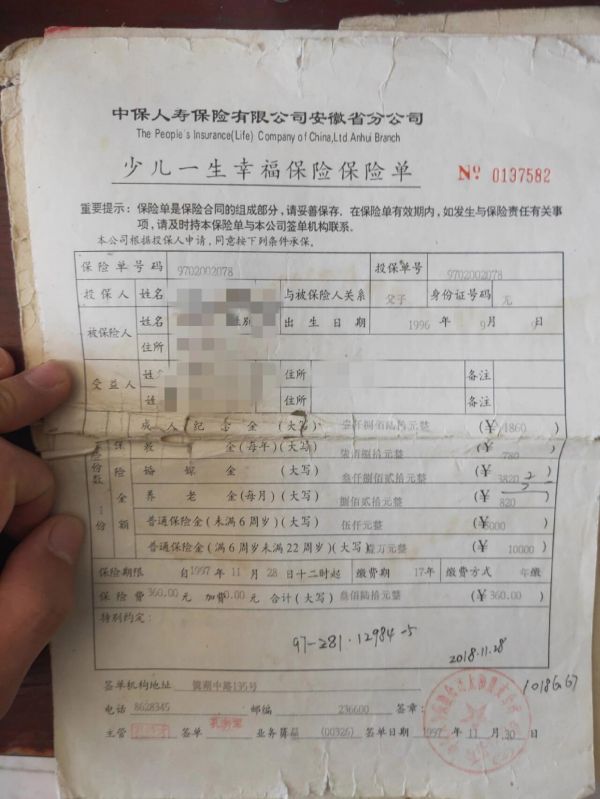 中保人寿保险有限公司安徽省分公司
The People's Insurance(Life) Company of China,Ltd.Anhui Branch
少儿一生幸福保险保险单 № 0137582
重要提示：保险单是保险合同的组成部分，请妥善保存．在保险单有效期内，如发生与保险责任有关事
项，请及时持本保险单与本公司签单机构联系。
本公司根据投保人申请，同意按下列条件承保。
保险单号码 9702002078 投保单号 9702002078
投保人 姓名 与被保险人关系 父子 身份证号码 无
被保险人 姓名 性别 出生日期 1996 年 9 月 9
住所
受益人 姓 住所 备注
姓 住所 备注
成人纪念金 (大写) 壹仟捌佰陆拾元整 (¥ 1860 )
金(每年)(大写) 柒佰捌拾元整 (¥ 780 )
保 婚嫁金 (大写) 叁仟捌佰贰拾元整 (¥ 3820 )
险 养老金(每月)(大写) 捌佰贰拾元整 (¥ 820 )
金 普通保险金(未满6周岁)(大写) 伍仟元整 (¥ 5000 )
额 普通保险金(满6周岁未满22周岁)(大写) 壹万元整 (¥ 10000 )
份数 1份
保险期限 自1997年11月28日十二时起 缴费期 17年 缴费方式 年缴
保险费 360.00 元 加费 0.00 元 合计(大写) 叁佰陆拾元整 (¥ 360.00 )
特别约定：
97-281·12984-5
2018.11.28
101866067
签单机构地址 镜湖中路195号
电话 8628345 邮编 236600 签章：
主管 签单 业务员 (00326) 签单日期 1997 年 11 月 30 日